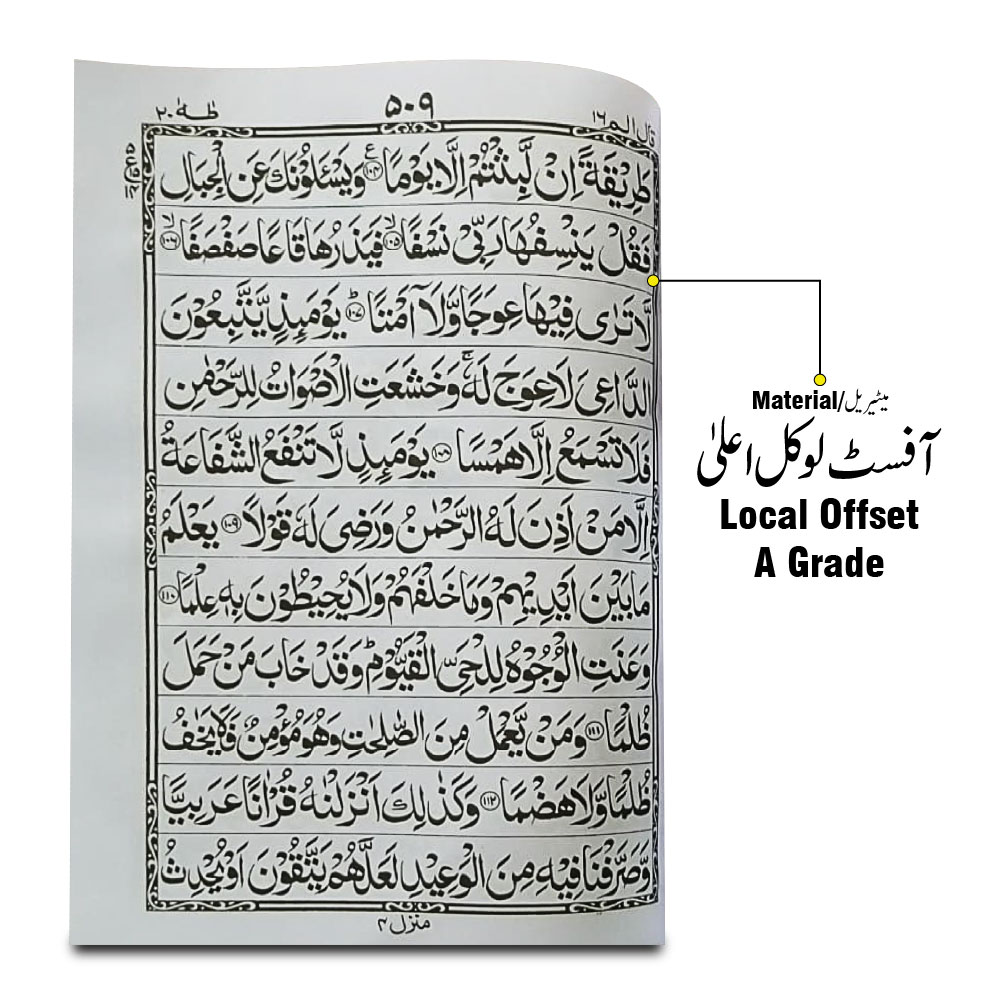 قال الم ١٦
۵۰۹
طٰهٰ ٢٠
طَرِيْقَةً اِنْ لَّبِثْتُمْ اِلَّا يَوْمًا ﴿۱۰۴﴾ ع وَيَسْـَٔلُوْنَكَ عَنِ الْجِبَالِ
فَقُلْ يَنْسِفُهَا رَبِّيْ نَسْفًا ﴿۱۰۵﴾ۙ فَيَذَرُهَا قَاعًا صَفْصَفًا ﴿۱۰۶﴾ۙ
لَّا تَرٰى فِيْهَا عِوَجًا وَّلَآ اَمْتًا ﴿۱۰۷﴾ؕ يَوْمَىِٕذٍ يَّتَّبِعُوْنَ
الدَّاعِيَ لَا عِوَجَ لَهٗ ۚ وَخَشَعَتِ الْاَصْوَاتُ لِلرَّحْمٰنِ
فَلَا تَسْمَعُ اِلَّا هَمْسًا ﴿۱۰۸﴾ يَوْمَىِٕذٍ لَّا تَنْفَعُ الشَّفَاعَةُ
اِلَّا مَنْ اَذِنَ لَهُ الرَّحْمٰنُ وَرَضِيَ لَهٗ قَوْلًا ﴿۱۰۹﴾ يَعْلَمُ
مَا بَيْنَ اَيْدِيْهِمْ وَمَا خَلْفَهُمْ وَلَا يُحِيْطُوْنَ بِهٖ عِلْمًا ﴿۱۱۰﴾
وَعَنَتِ الْوُجُوْهُ لِلْحَيِّ الْقَيُّوْمِ ؕ وَقَدْ خَابَ مَنْ حَمَلَ
ظُلْمًا ﴿۱۱۱﴾ وَمَنْ يَّعْمَلْ مِنَ الصّٰلِحٰتِ وَهُوَ مُؤْمِنٌ فَلَا يَخٰفُ
ظُلْمًا وَّلَا هَضْمًا ﴿۱۱۲﴾ وَكَذٰلِكَ اَنْزَلْنٰهُ قُرْاٰنًا عَرَبِيًّا
وَّصَرَّفْنَا فِيْهِ مِنَ الْوَعِيْدِ لَعَلَّهُمْ يَتَّقُوْنَ اَوْ يُحْدِثُ
منزل ۴
Material/میٹیریل
آفسٹ لوکل اعلیٰ
Local Offset
A Grade